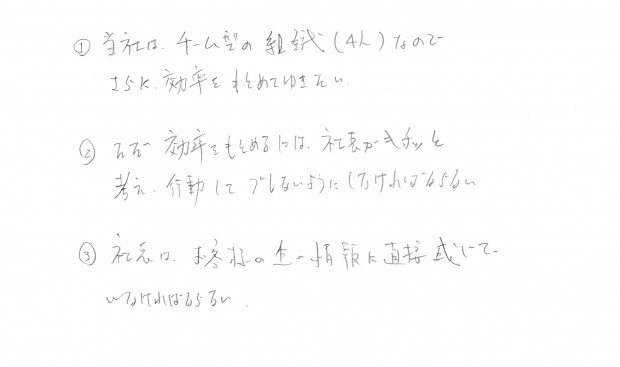 ① 当社は、チーム型の組織（4人）なので
さらに、効率を求めてゆきたい。
② 効率をもとめるには、社長がキチッと
考え、行動して ブレないようにしなければならない
③ 社長は、お客様の生の情報に直接
いなければならない。